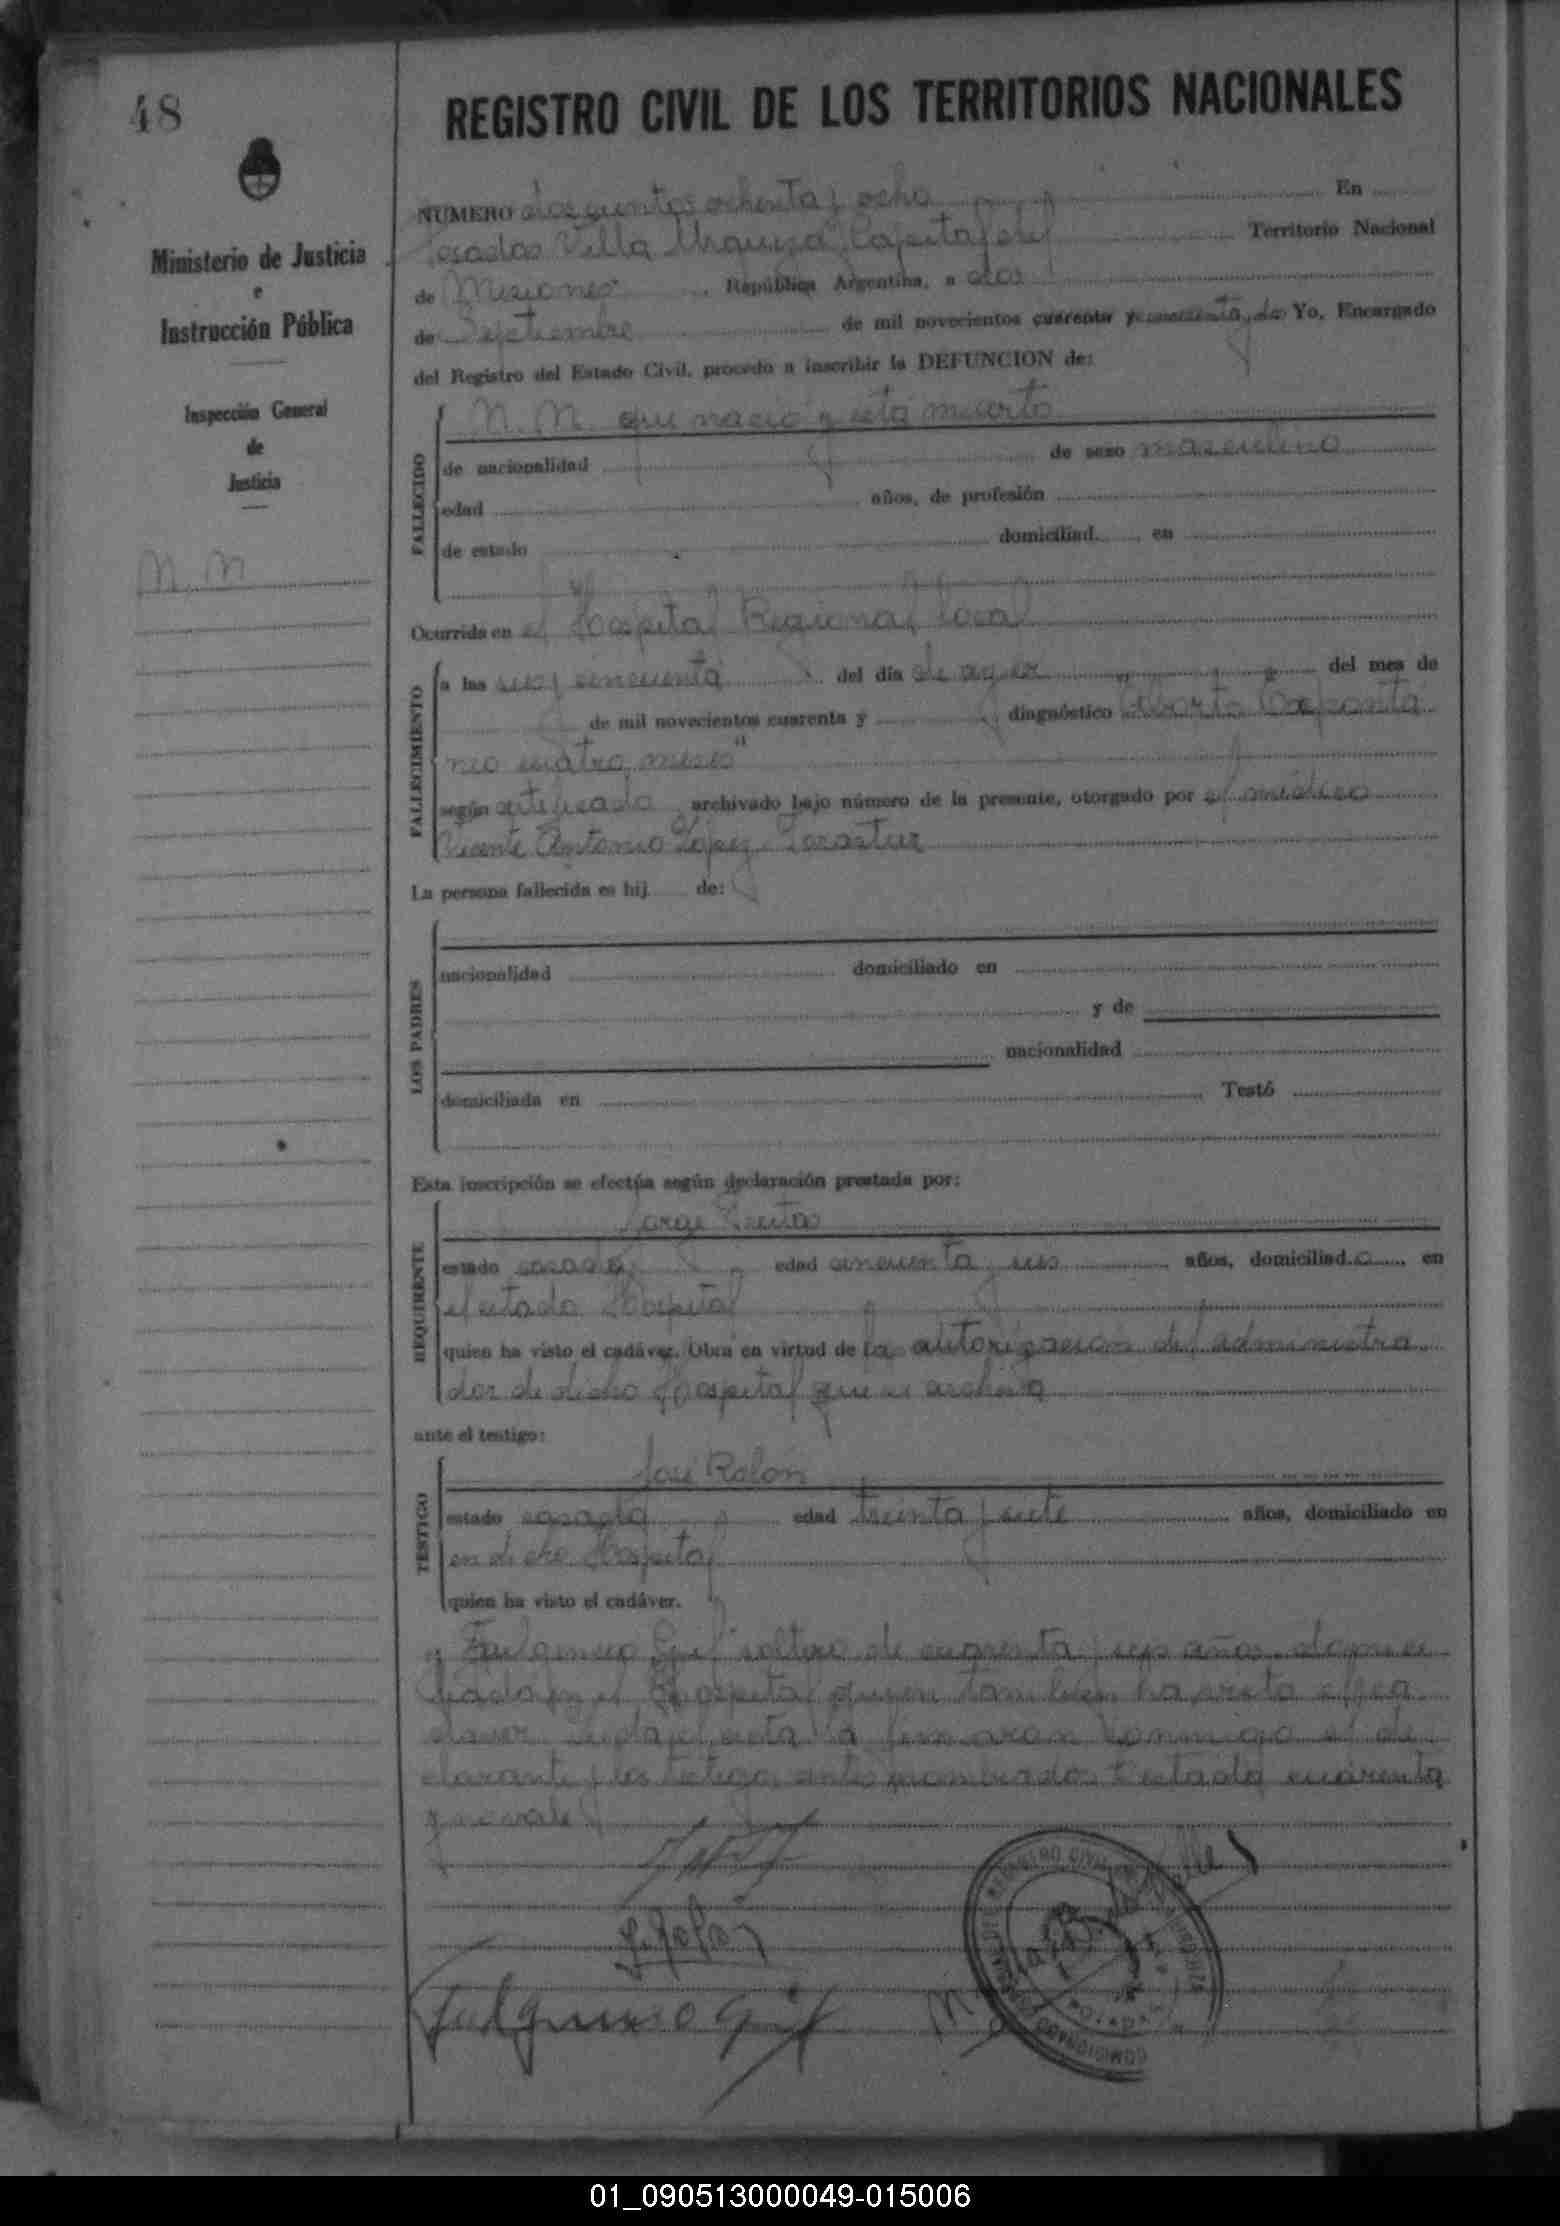 48
REGISTRO CIVIL DE LOS TERRITORIOS NACIONALES
Ministerio de Justicia
e
Instrucción Pública
Inspección General
de
Justicia
N. N
NUMERO doscientos ochenta y ocho En
Posadas Villa Urquiza Capital del Territorio Nacional
de Misiones República Argentina, a dos
de Septiembre de mil novecientos cuarenta y cincuenta y dos Yo, Encargado
del Registro del Estado Civil, procedo a inscribir la DEFUNCION de:
FALLECIDO
N. N. que nació y está muerto
de nacionalidad de sexo masculino
edad años, de profesión
de estado domiciliad en
Ocurrida en el Hospital Regional local
FALLECIMIENTO
a las seis y cincuenta del día de ayer del mes de
de mil novecientos cuarenta y diagnóstico "Aborto Espontá
neo cuatro meses"
según certificado archivado bajo número de la presente, otorgado por el médico
Vicente Antonio López
La persona fallecida es hij de:
LOS PADRES
nacionalidad domiciliado en
y de
nacionalidad
domiciliada en Testó
Esta inscripción se efectúa según declaración prestada por:
REQUIRENTE
Jorge
estado casado edad cincuenta y seis años, domiciliado en
el citado Hospital
quien ha visto el cadáver. Obra en virtud de la autorización del administra
dor de dicho Hospital que se archiva
ante el testigo:
TESTIGO
José Rolón
estado casado edad treinta y siete años, domiciliado en
en dicho Hospital
quien ha visto el cadáver.
y Fulgencio Gil soltero de cuarenta y seis años domici
liado en el Hospital quien también ha visto el ca
daver Leída el acta la firmaron conmigo el de
clarante y los testigos antes nombrados Testado cuarenta
y no vale
J. Rolón
Fulgencio Gil
01_090513000049-015006